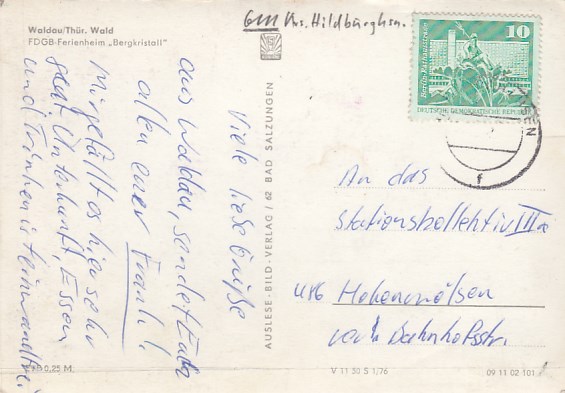 Waldau/Thür. Wald
FDGB-Ferienheim „Bergkristall"
6111 Krs. Hildburghsn.
10
Berlin, Rathausstraße
DEUTSCHE DEMOKRATISCHE REPUBLIK
Viele liebe Grüße
aus Waldau, sendet Euch
allen euer Frank!
Mir gefällt es hier sehr
gut Unterkunft, Essen
und Trinken ist einwandfrei
AUSLESE-BILD-VERLAG / 62 BAD SALZUNGEN
An das
Stationskollektiv III a
486 Hohenmölsen
Bahnhofsstr.
0,25 M
V 11 50 S 1/76
09 11 02 101